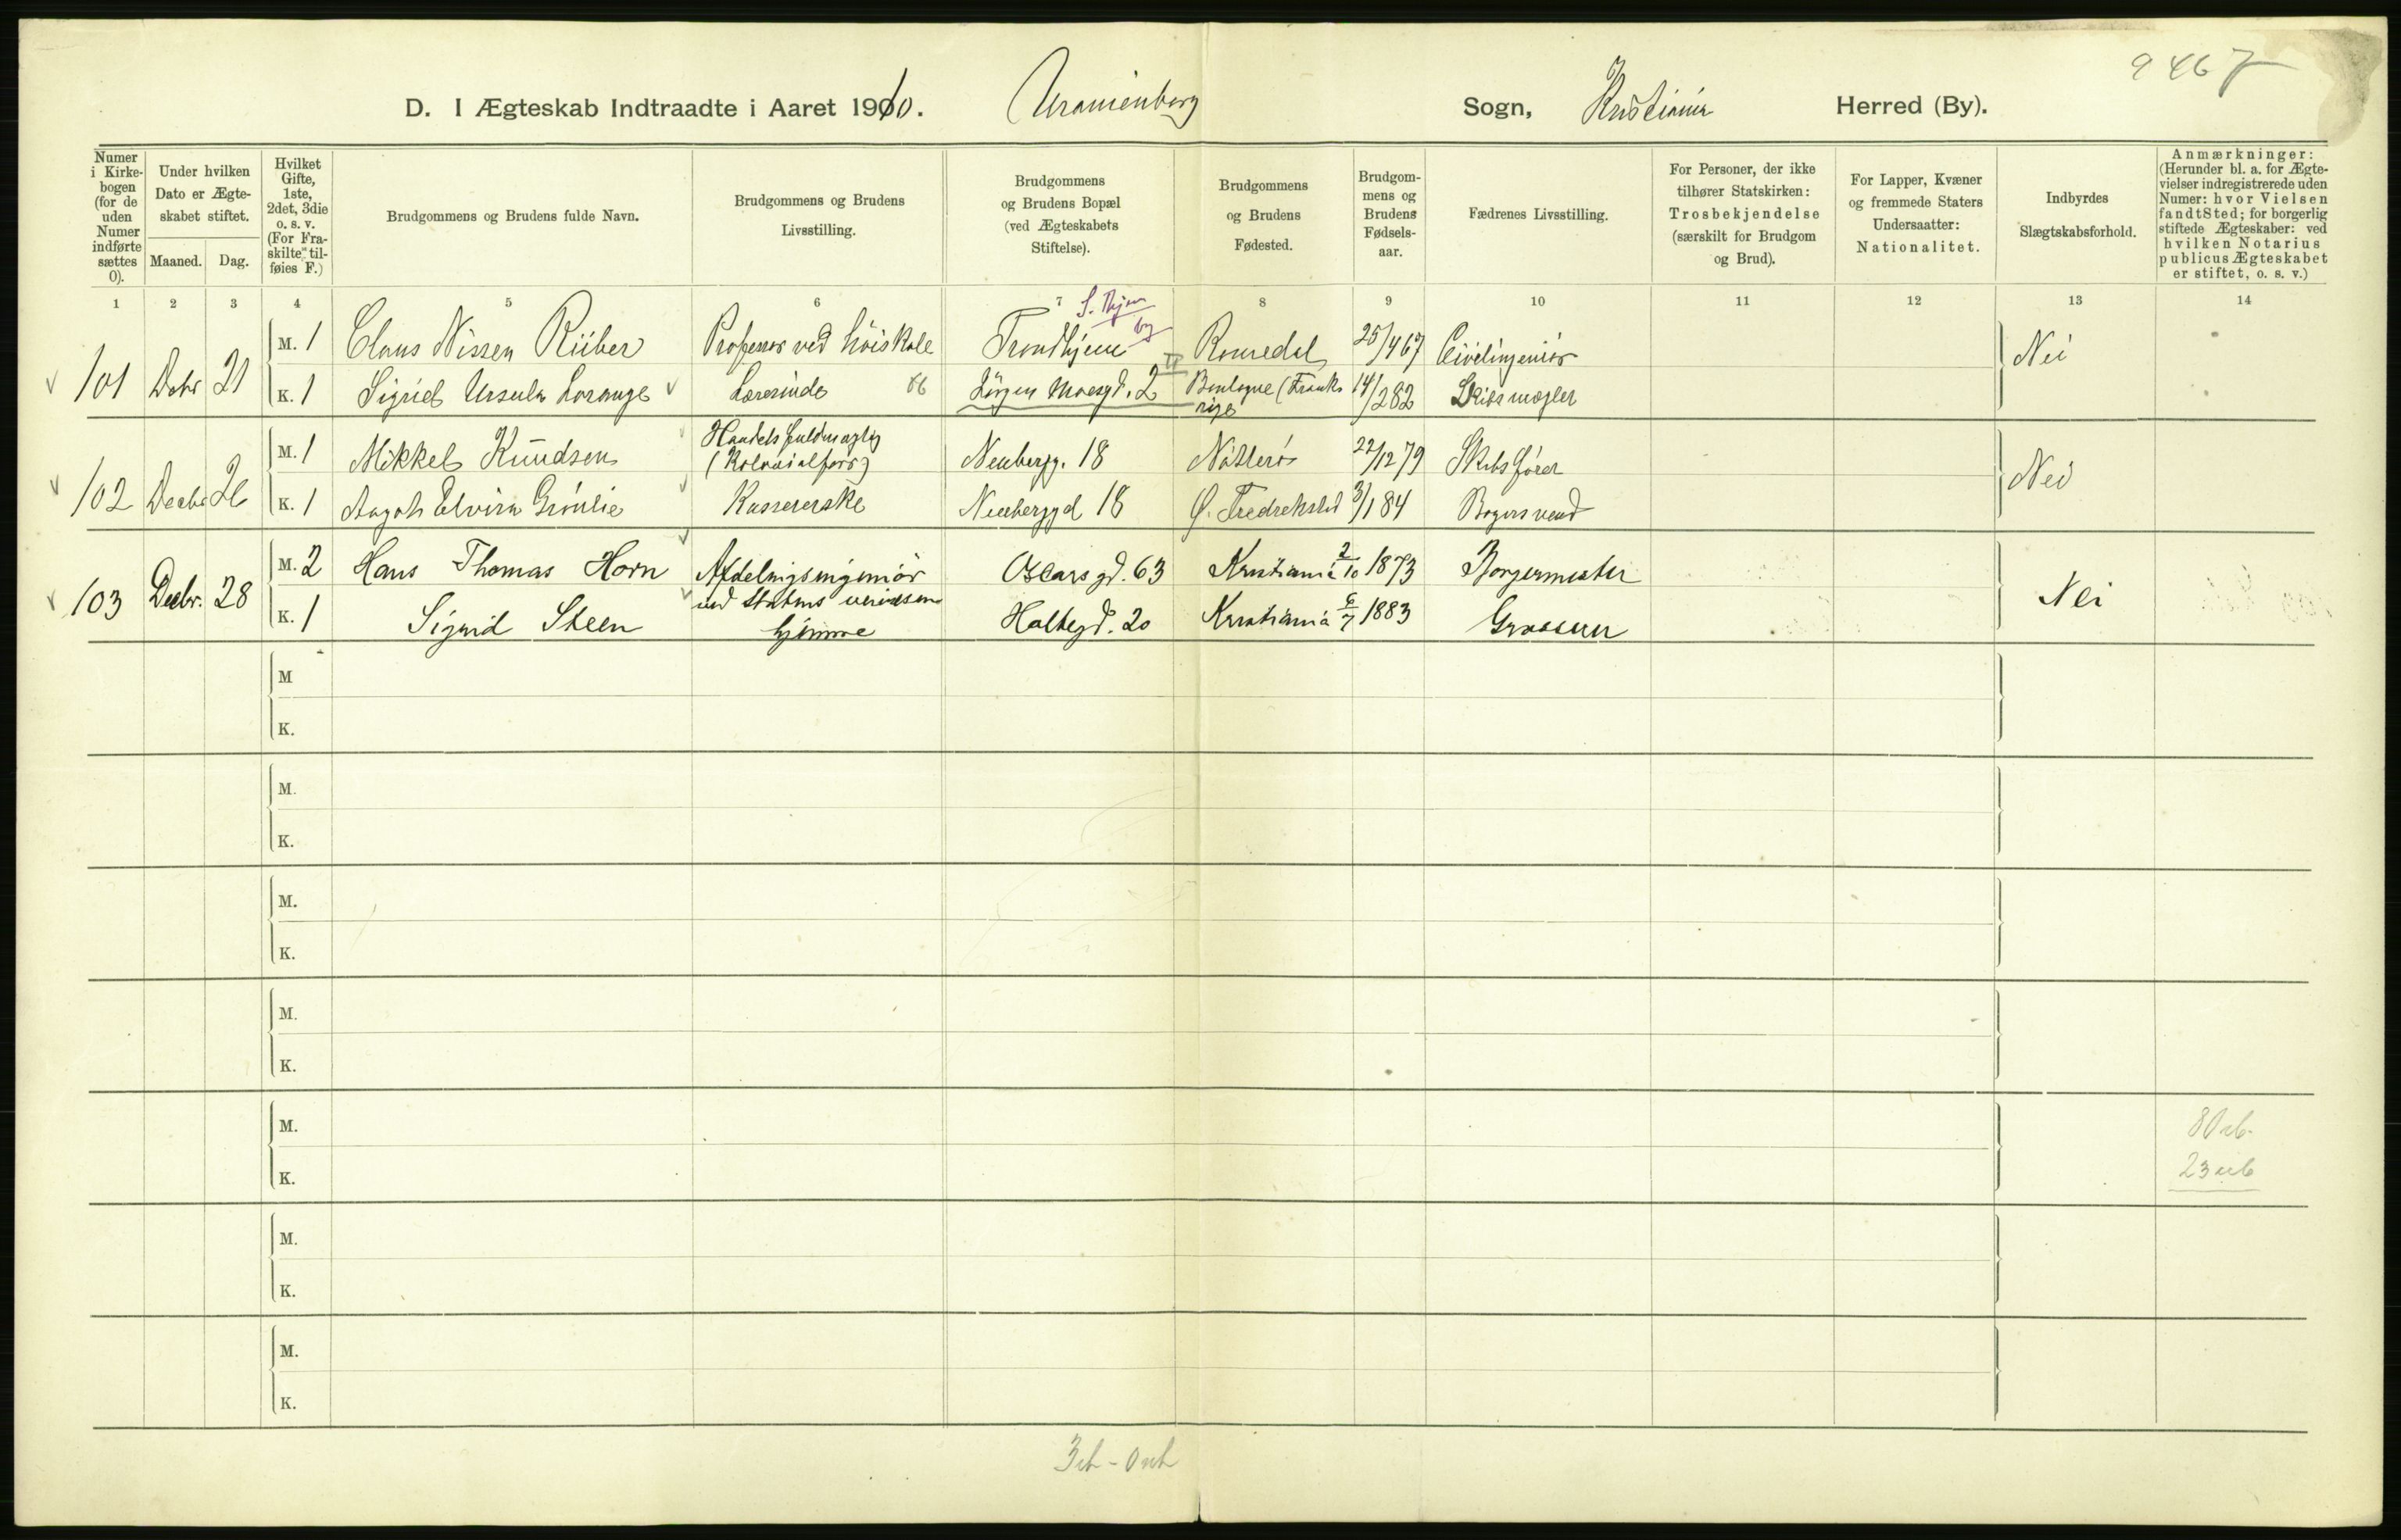 9467
D. I Ægteskab Indtraadte i Aaret 1910. Uranienborg Sogn, Kristiania Herred (By).
Numer i Kirkebogen (for de uden Numer indførte sættes 0).
Under hvilken Dato er Ægteskabet stiftet.
Maaned. Dag.
Hvilket Gifte, 1ste, 2det, 3die o. s. v. (For Fraskilte tilføies F.)
Brudgommens og Brudens fulde Navn.
Brudgommens og Brudens Livsstilling.
Brudgommens og Brudens Bopæl (ved Ægteskabets Stiftelse).
Brudgommens og Brudens Fødested.
Brudgommens og Brudens Fødselsaar.
Fædrenes Livsstilling.
For Personer, der ikke tilhører Statskirken: Trosbekjendelse (særskilt for Brudgom og Brud).
For Lapper, Kvæner og fremmede Staters Undersaatter: Nationalitet.
Indbyrdes Slægtskabsforhold.
Anmærkninger: (Herunder bl. a. for Ægtevielser indregistrerede uden Numer: hvor Vielsen fandt Sted; for borgerlig stiftede Ægteskaber: ved hvilken Notarius publicus Ægteskabet er stiftet, o. s. v.)
1 2 3 4 5 6 7 8 9 10 11 12 13 14
S. Thjem by
M. 1 Claus Nissen Riiber Professor ved høiskole Trondhjem Romedal 25/4 67 Civilingeniør
101 Debr 21 Nei
K. 1 Sigrid Ursula Lorange Lærerinde 86 Jørgen Moesgd. 2 Boulogne (Frankrige 14/2 82 Skibsmægler
M. 1 Mikkel Knudsen Handelsfuldmægtig (Kolonialforr) Neubergg. 18 Nøtterø 22/12 79 Skibsfører
102 Decbr 26 Nei
K. 1 Aagot Elvira Grønlie Kassererske Neuberggd 18 Ø. Fredrikstad 3/1 84 Bøgersvend
M. 2 Hans Thomas Horn Afdelingsingeniør ved Statens veivæsen Oscarsgd. 63 Kristiania 2/10 1873 Borgermester
103 Decbr. 28 Nei
K. 1 Sigrid Steen hjemme Holtegd. 20 Kristiania 6/7 1883 Grosserer
M
K.
M.
K.
M.
K.
M.
K.
M.
K.
M.
K.
M.
K.